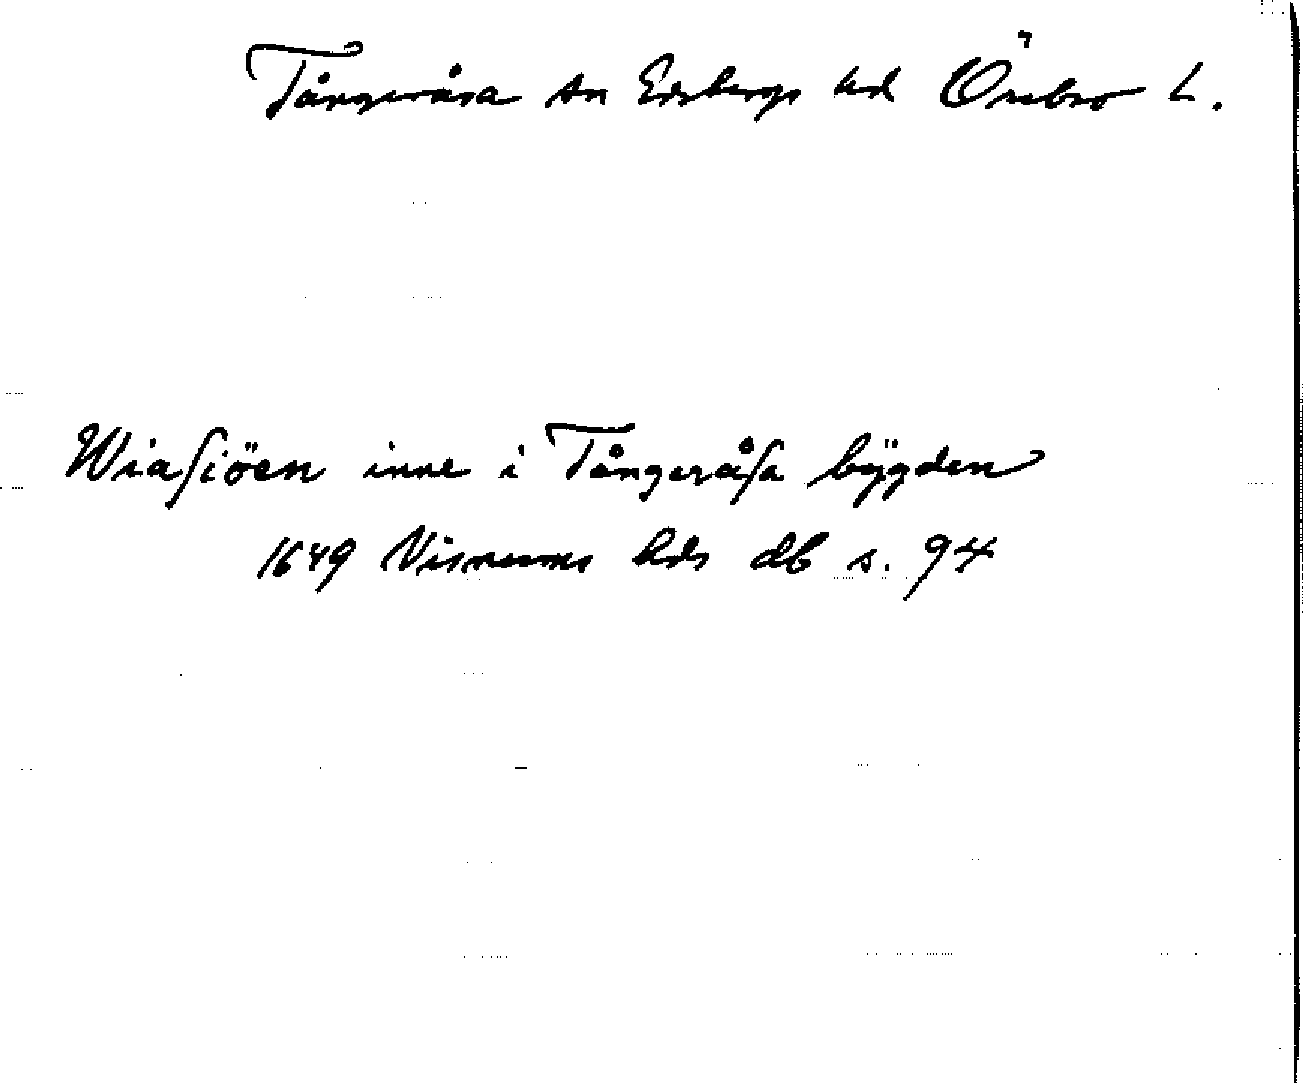 Tångeråsa sn Edsbergs hd Örebro L.
Wiaſiöen inne i Tångeråſa bÿgden
1649 Visnums hds db s. 94